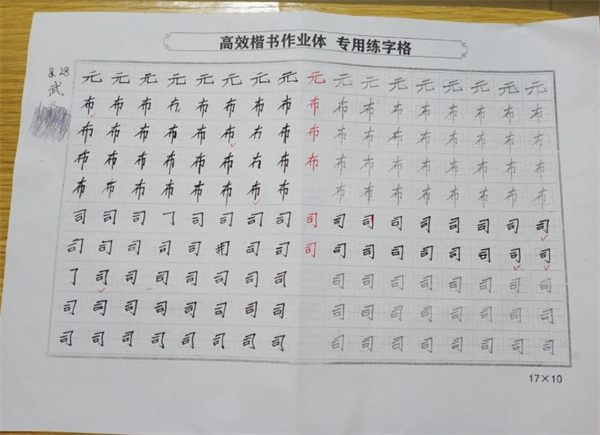 高效楷书作业体 专用练字格
8.28
武
元 元 元 元 元 元 元 元 元 元 元 元 元 元 元 元 元
布 布 布 布 布 布 布 布 布 布 布 布 布 布 布 布
布 布 布 布 布 布 布 布 布 布 布 布 布 布 布 布
布 布 布 布 布 布 布 布 布 布 布 布 布 布 布 布
布 布 布 布 布 布 布 布 布 布 布 布 布 布 布 布
司 司 司 司 司 司 司 司 司 司 司 司 司 司 司 司
司 司 司 司 司 司 司 司 司 司 司 司 司 司 司 司
司 司 司 司 司 司 司 司 司 司 司 司 司 司 司
司 司 司 司 司 司 司 司 司 司 司 司 司 司 司 司
司 司 司 司 司 司 司 司 司 司 司 司 司 司 司 司
17×10